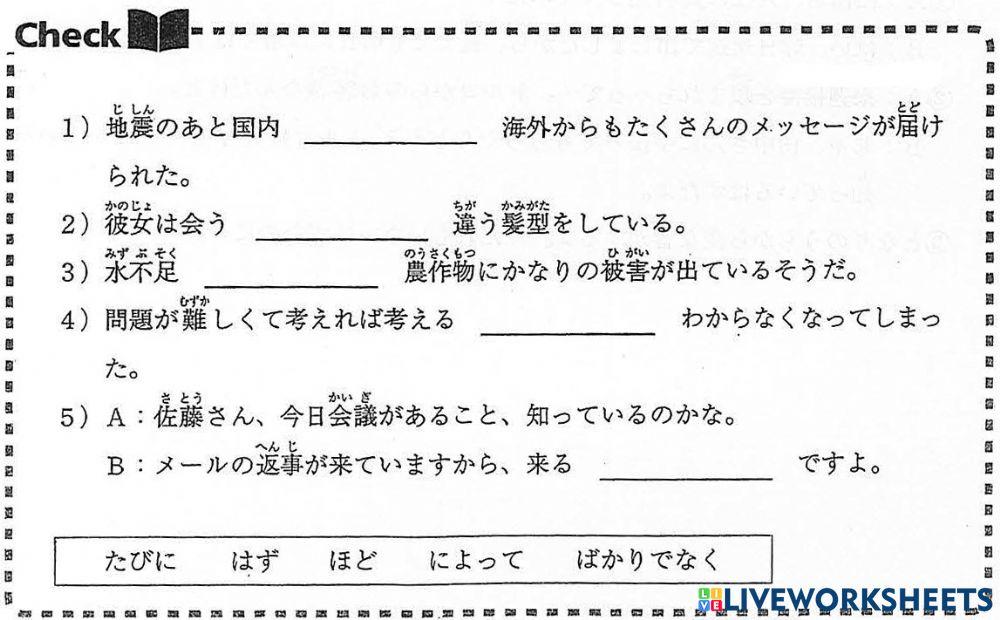 Check
1) 地震のあと国内 ＿＿＿＿ 海外からもたくさんのメッセージが届け
られた。
2) 彼女は会う ＿＿＿＿ 違う髪型をしている。
3) 水不足 ＿＿＿＿ 農作物にかなりの被害が出ているそうだ。
4) 問題が難しくて考えれば考える ＿＿＿＿ わからなくなってしまっ
た。
5) A：佐藤さん、今日会議があること、知っているのかな。
B：メールの返事が来ていますから、来る ＿＿＿＿ ですよ。
たびに はず ほど によって ばかりでなく
LIVEWORKSHEETS